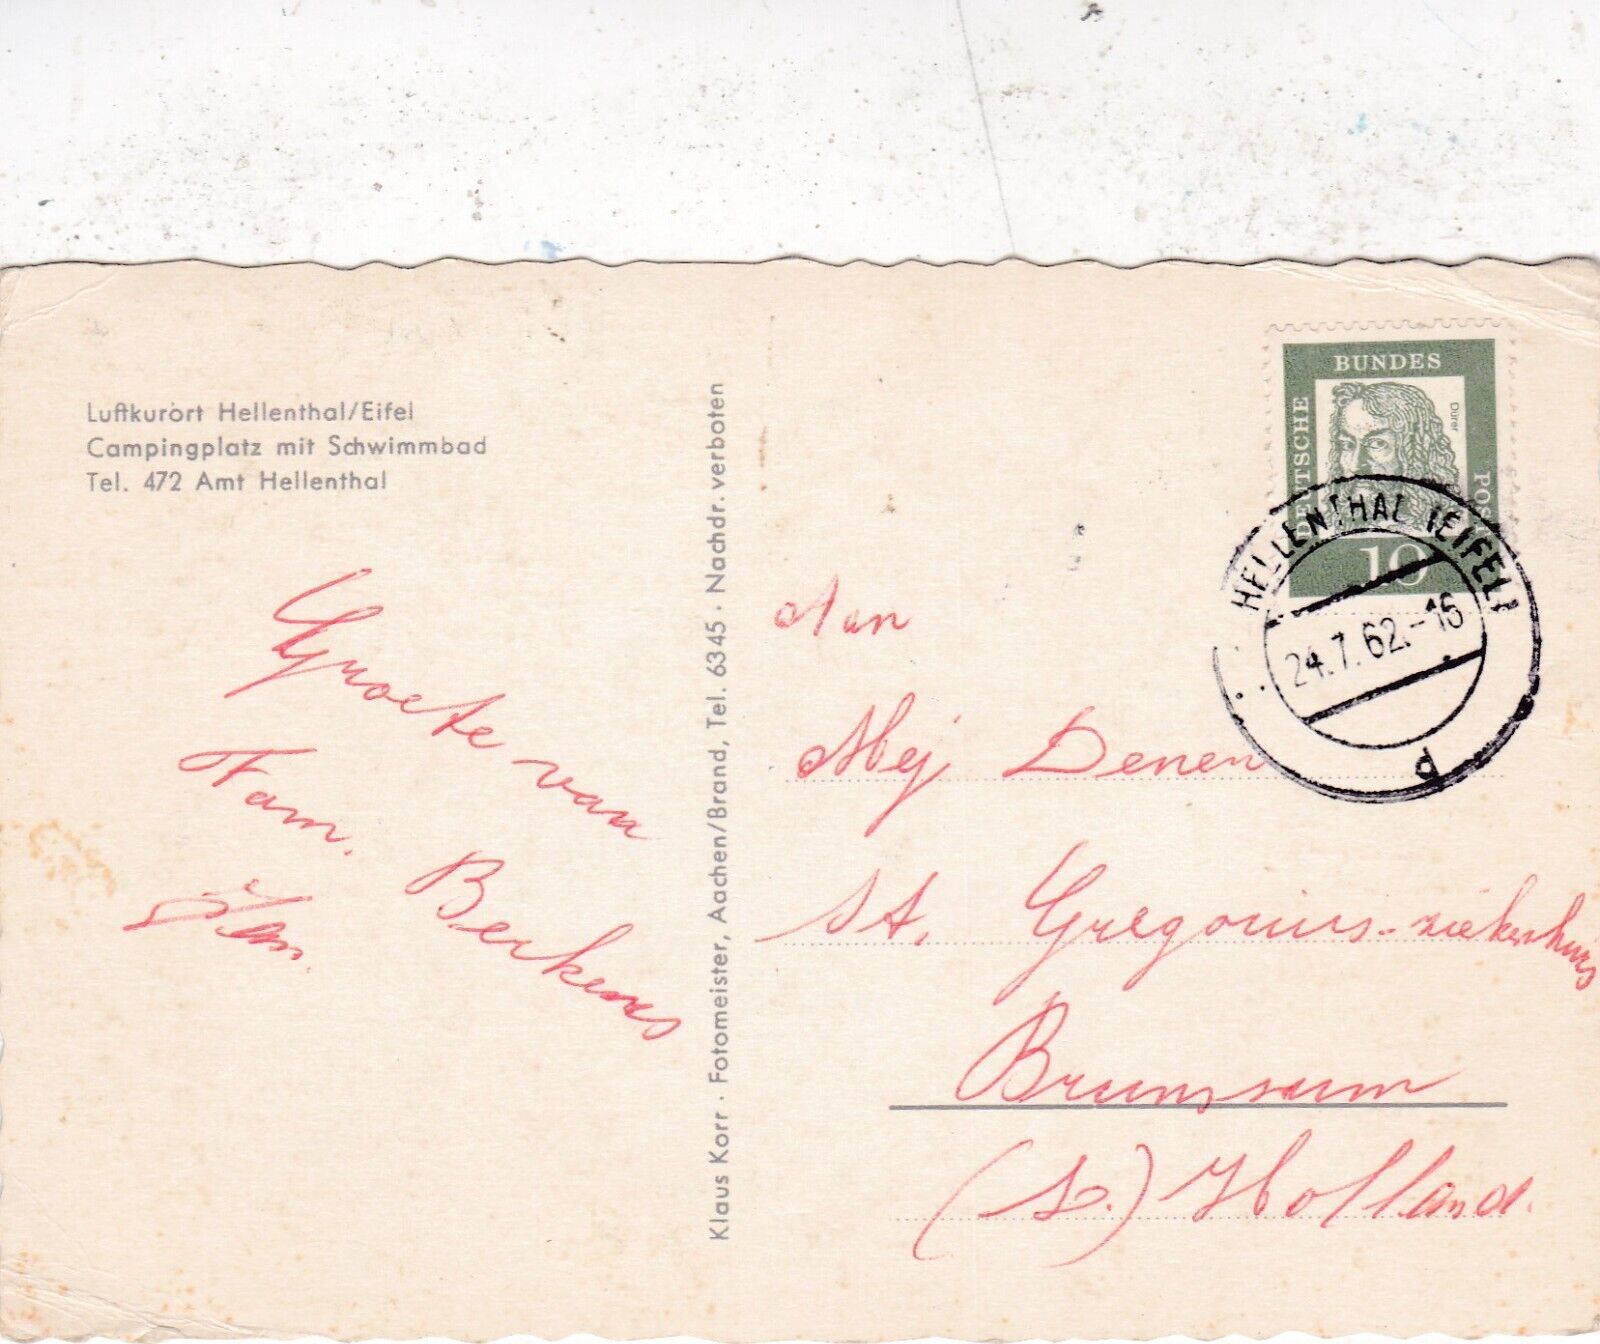 Luftkurort Hellenthal/Eifel
Campingplatz mit Schwimmbad
Tel. 472 Amt Hellenthal
Groete van
Fam. Berkens
Klaus Korr · Fotomeister, Aachen/Brand, Tel. 6345 · Nachdr. verboten
DEUTSCHE
BUNDES
POST
Dürer
10
HELLENTHAL (EIFEL)
24.7.62.-16
d
Aan
Mej Denen
St. Gregorius-ziekenhuis
Brunssum
(L.) Holland.